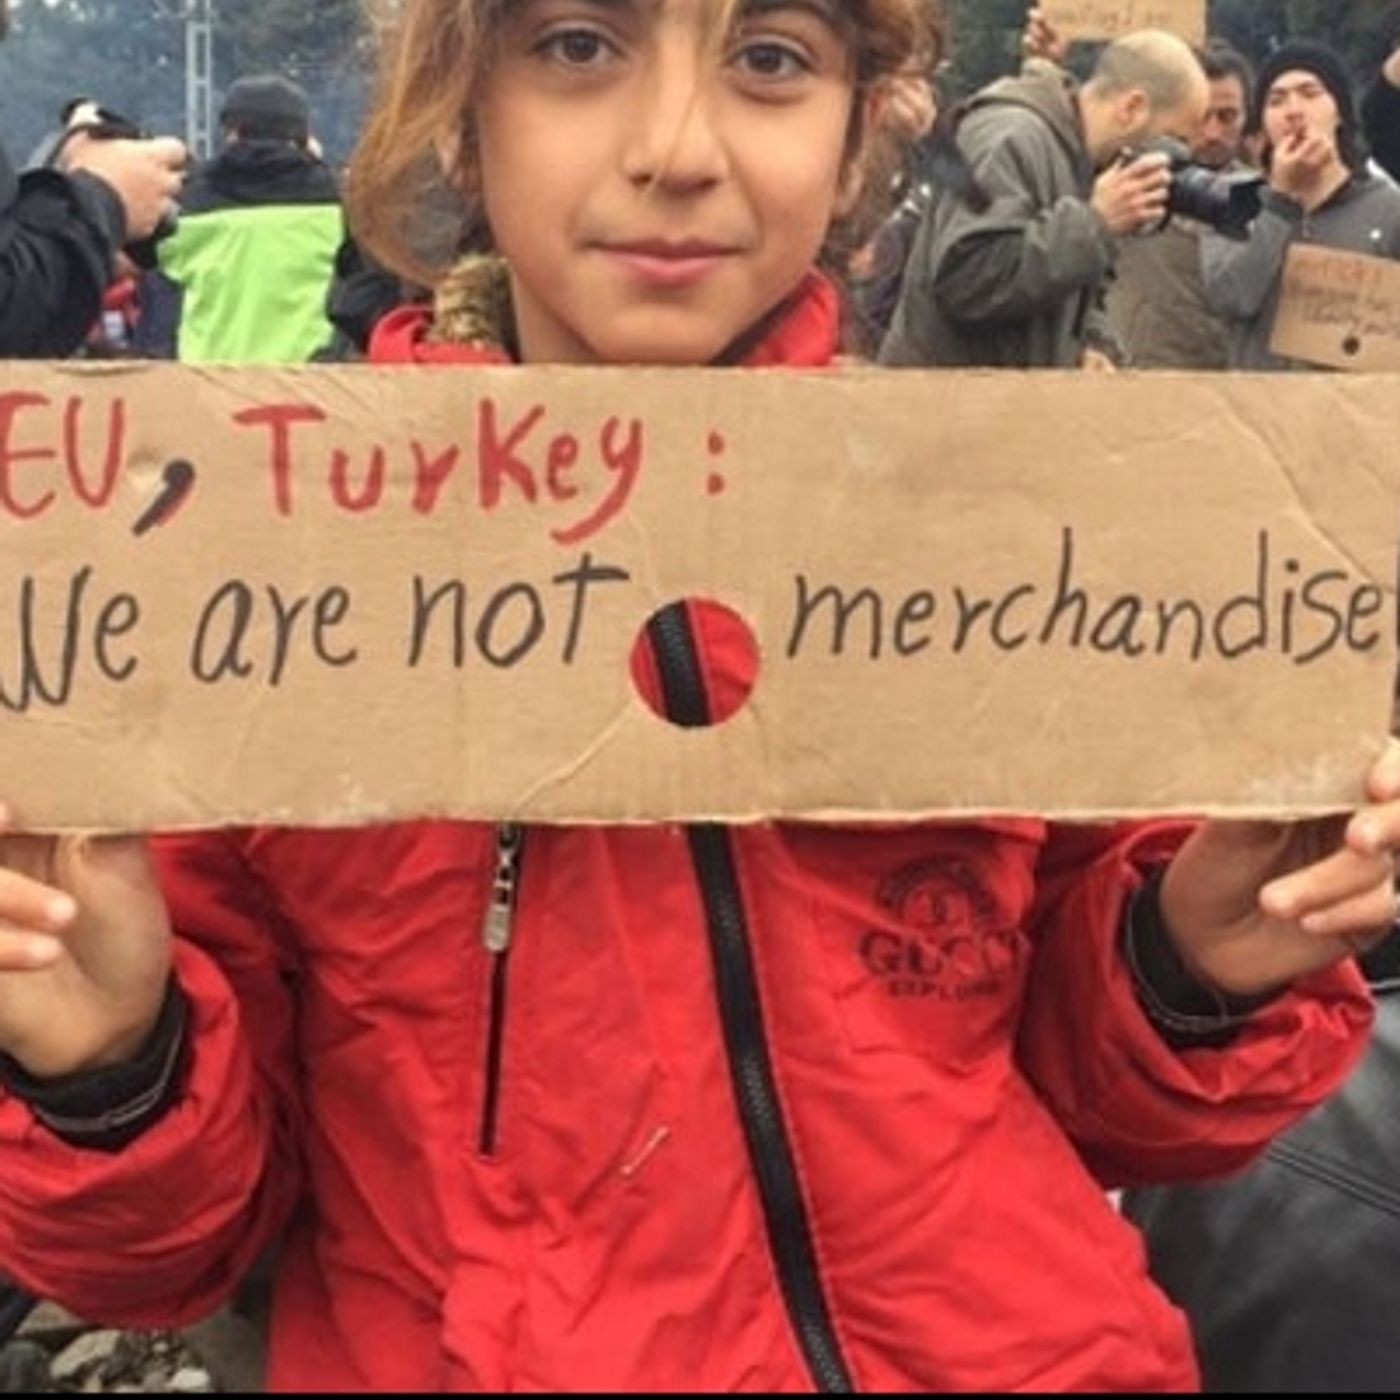 EU, Turkey :
We are not merchandise!
GUCCI